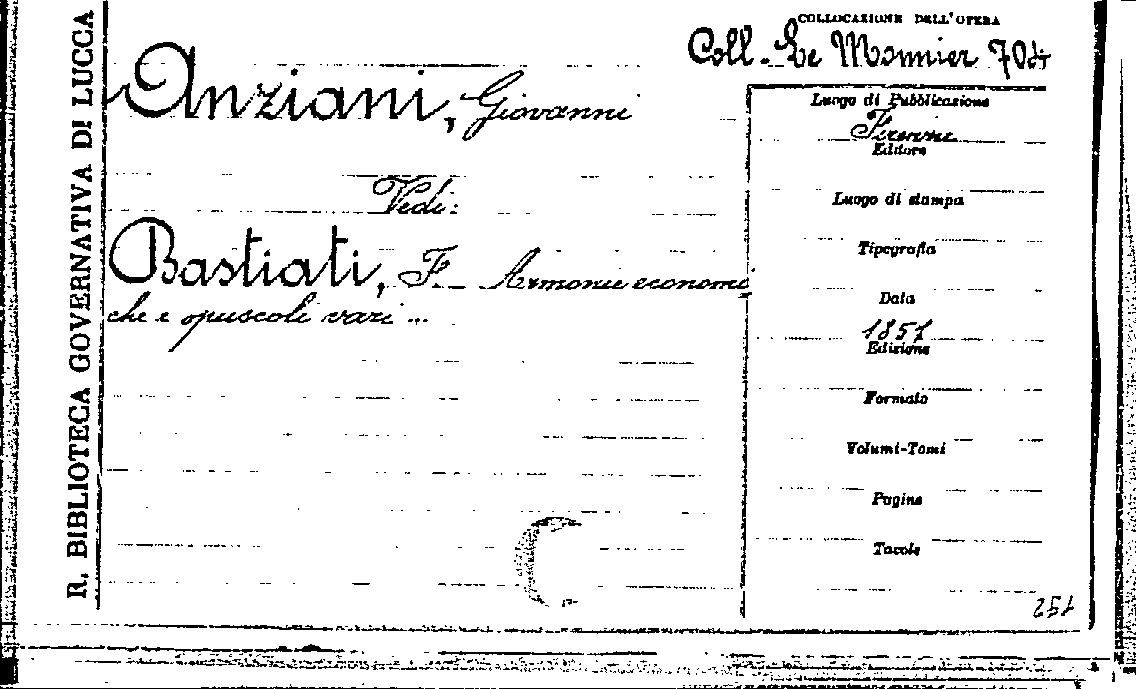 R. BIBLIOTECA GOVERNATIVA DI LUCCA
COLLOCAZIONE DELL'OPERA
Coll. Le Monnier 704
Anziani, Giovanni
Vedi:
Bastiati, F. Armonie economi
che e opuscoli vari ...
Luogo di Pubblicazione
Firenze
Editore
Luogo di stampa
Tipografia
Data
1851
Edizione
Formato
Volumi-Tomi
Pagine
Tavole
251